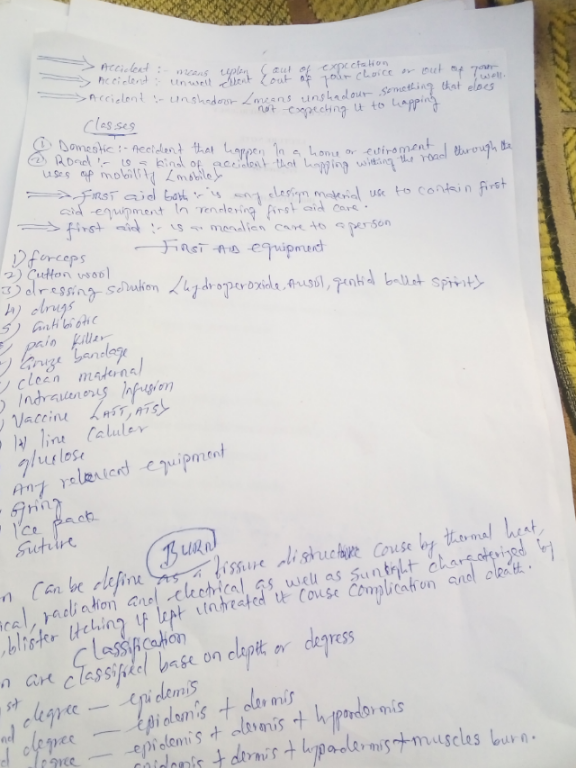 Accident :- means uplan (out of expectation
Accident :- unwell that (out of your choice or out of your will.
Accident :- unshadour <means unshadour something that does
not expecting it to happing
Classes
① Domestic :- Accident that happen in a home or eviroment
② Road :- is a kind of accident that happing withing the road through the
uses of mobility <mobile>
First aid box :- is any design material use to contain first
aid equipment in rendering first aid care.
first aid :- is a care to a person
FIRST AID equipment
1) forceps
2) Cutton wool
3) dressing solution <hydroperoxide, Ausol, spirit>
4) drugs
5) antibiotic
pain killer
Gauze bandage
clean maternal
Intravenous Infusion
Vaccine <ATT, ATS>
line
gluclose
Any equipment
Ice pack
Suture
BURN
n Can be define as a tissure distructure couse by thermal heat,
ical, radiation and electrical as well as sunlight characterized by
, blister Itching if left untreated it couse complication and death.
Classification
n are classified base on depth or degress
st degree — epidemis
nd degree — epidemis + dermis
d degree — epidemis + dermis + hypordermis
degree — epidemis + dermis + hypordermis + muscles burn.